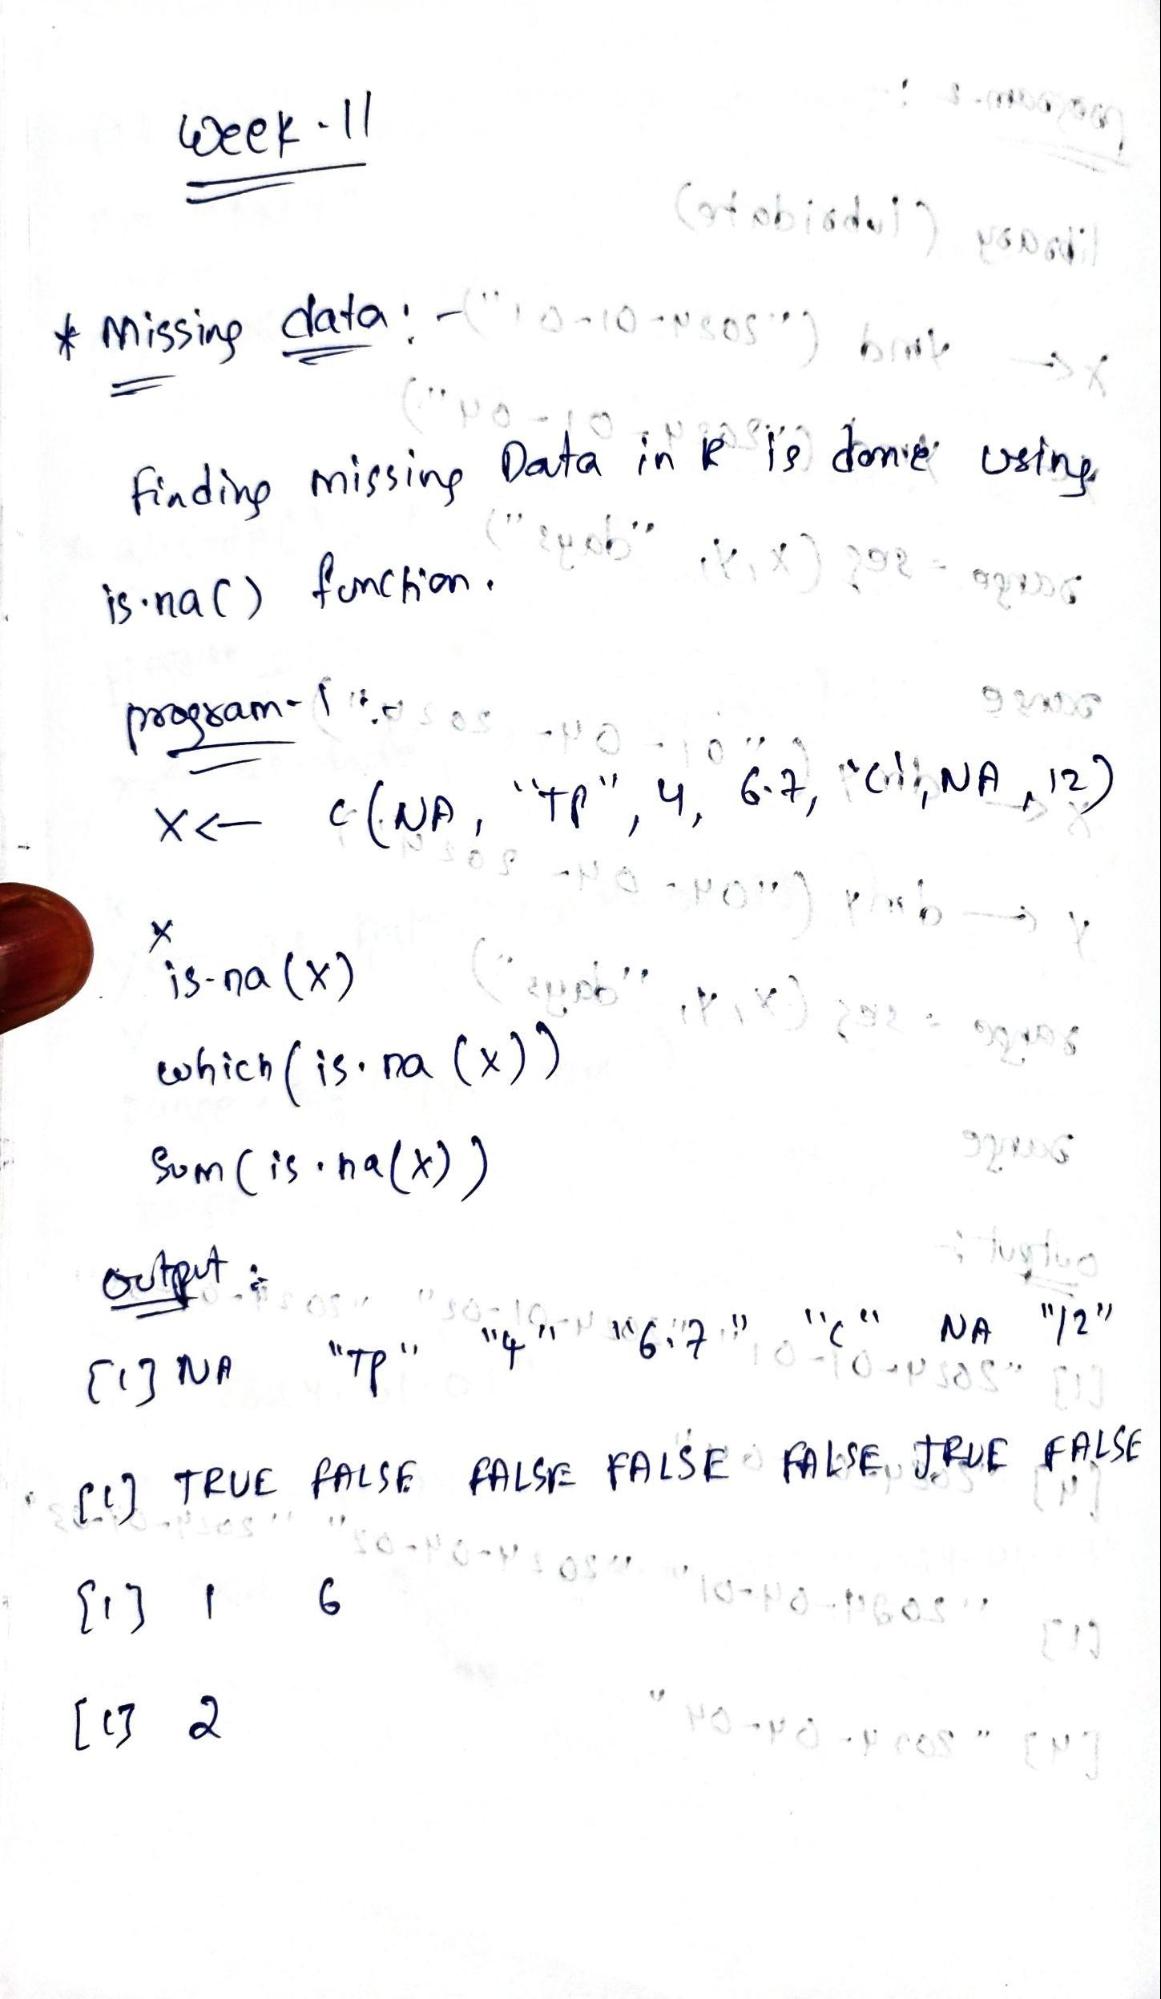 Week-11
* Missing data:-
Finding missing Data in R is done using
is.na() function.
program-1:-
X<- c(NA, "TP", 4, 6.7, "c", NA, 12)
X
is-na(x)
which(is.na(x))
Sum(is.na(x))
output:
[1] NA "TP" "4" "6.7" "c" NA "12"
[1] TRUE FALSE FALSE FALSE FALSE TRUE FALSE
[1] 1 6
[1] 2